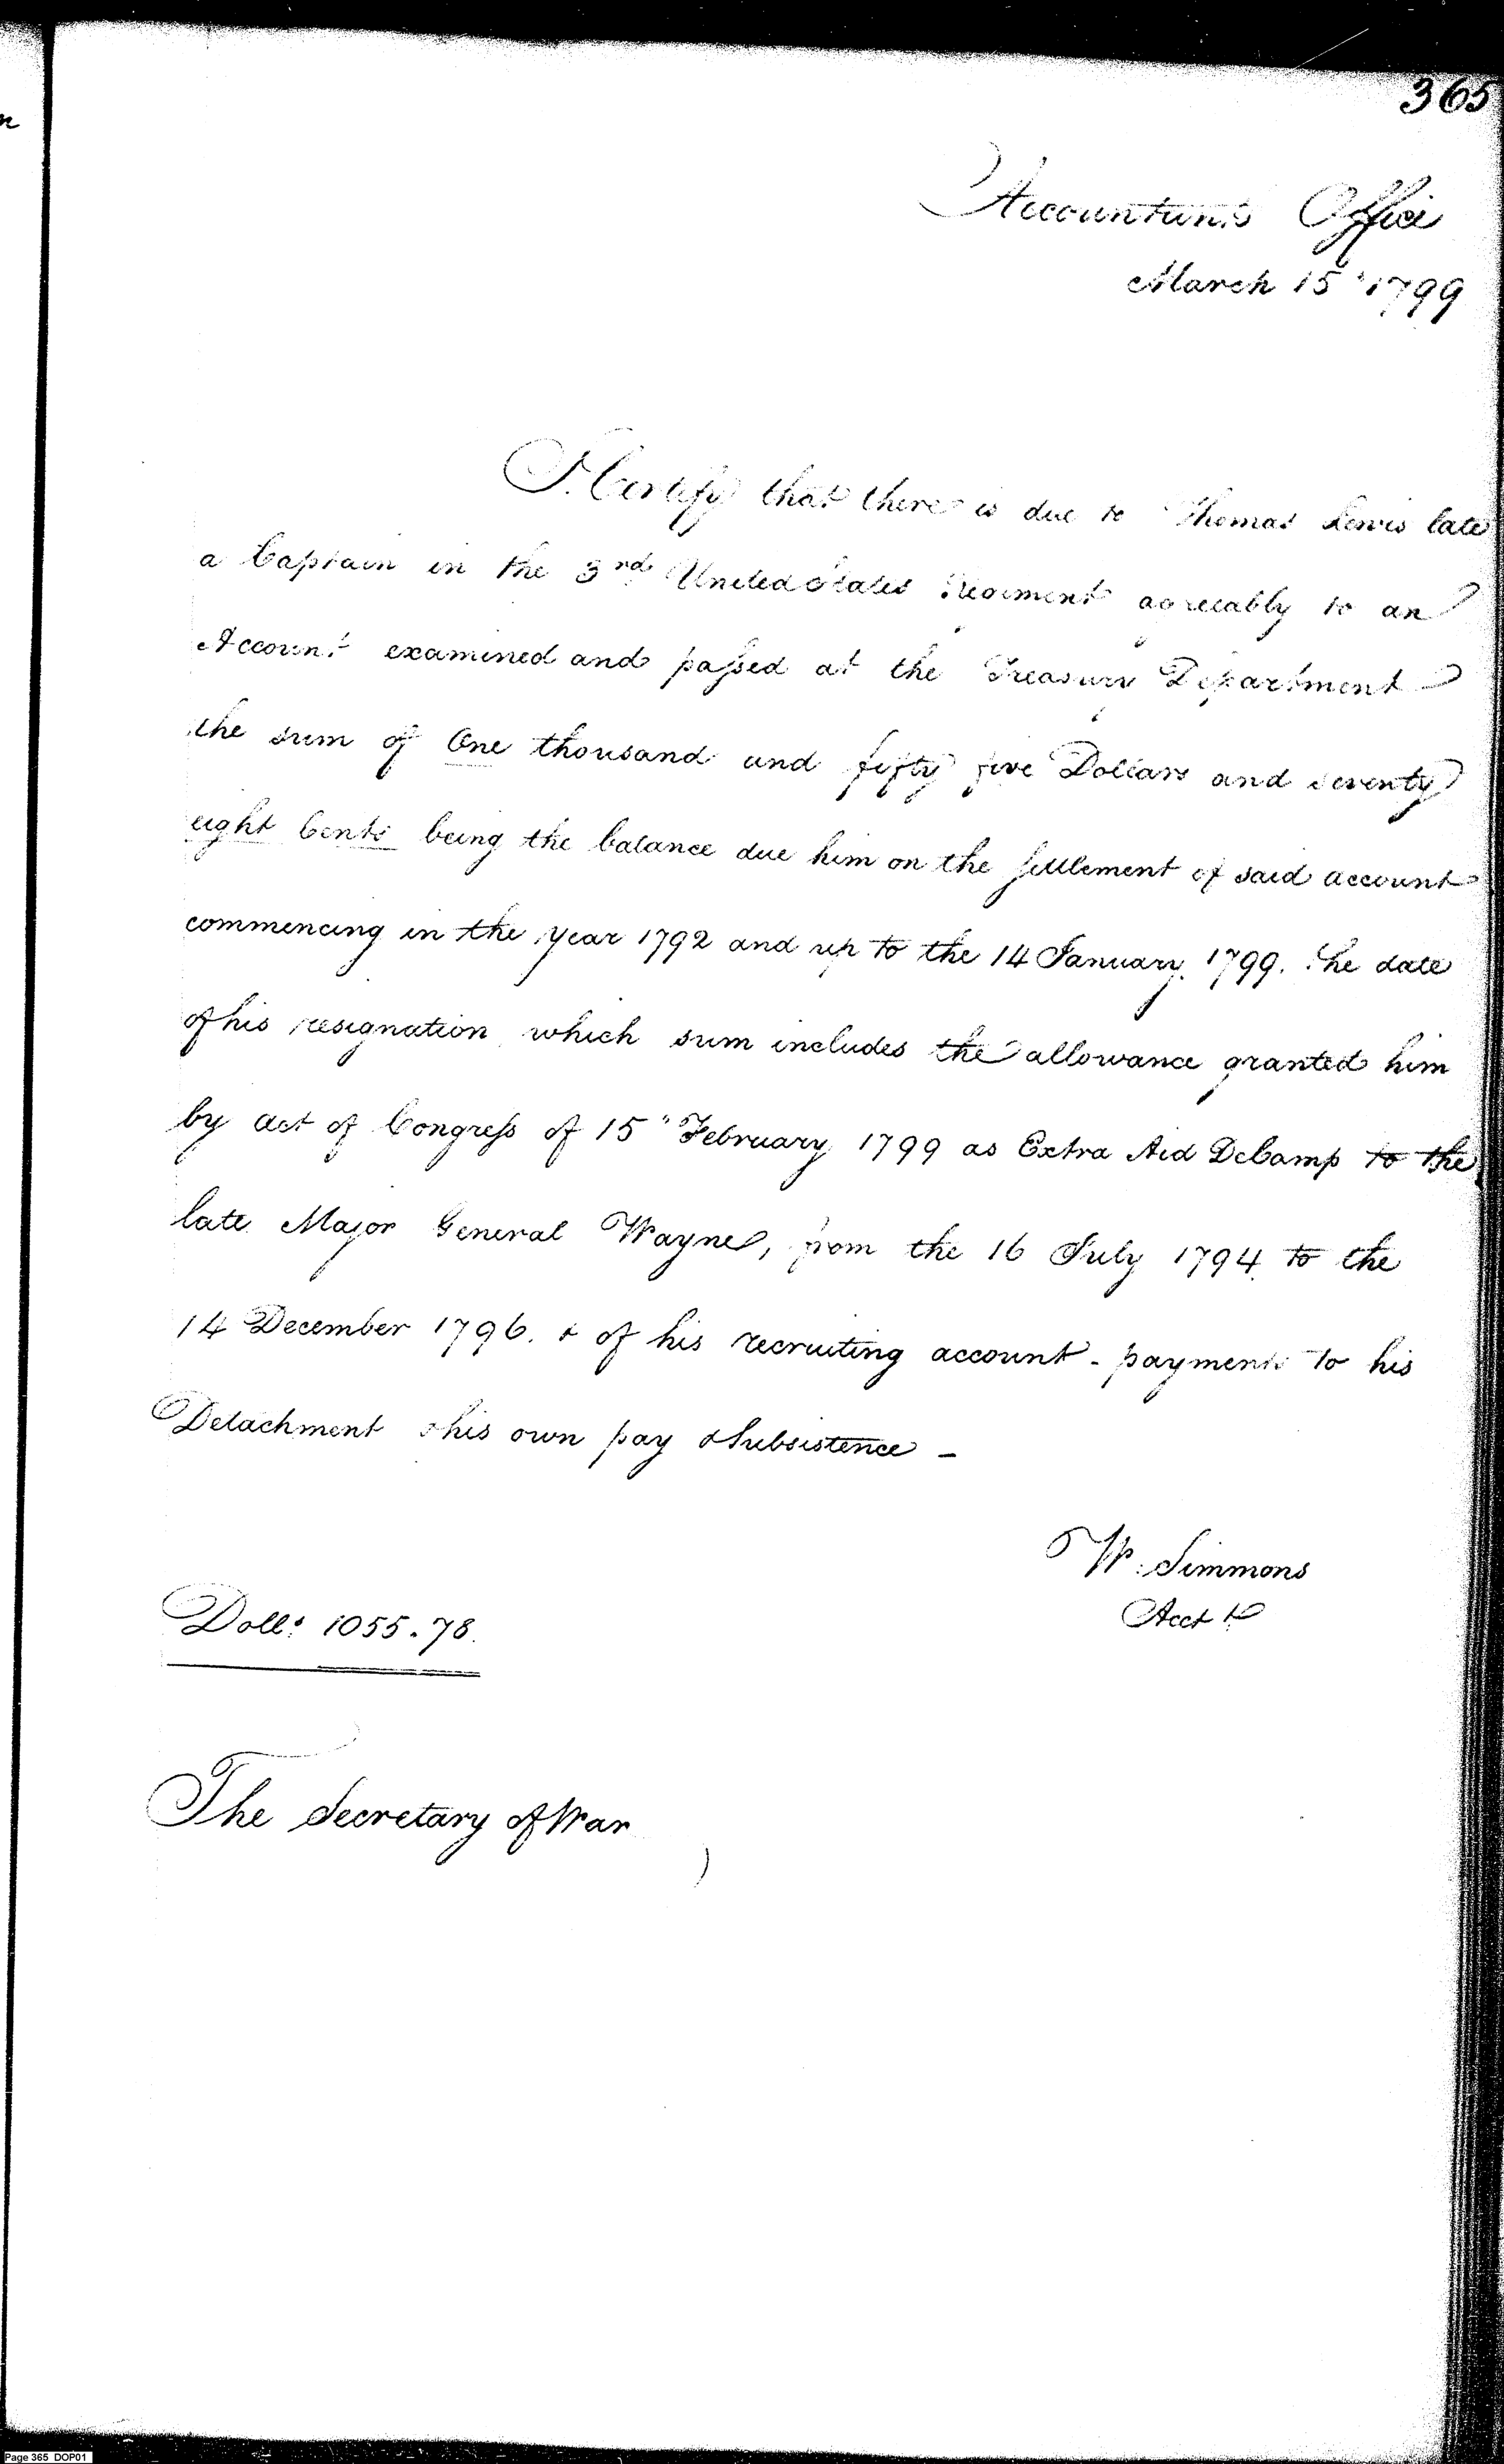 365
Accountants Office
March 15" 1799
I Certify that there is due to Thomas Lewis late
a Captain in the 3rd United States Regiment agreeably to an
Account examined and passed at the Treasury Department
the sum of One thousand and fifty five Dollars and seventy
eight Cents being the balance due him on the settlement of said account
commencing in the year 1792 and up to the 14 January 1799. the date
of his resignation which sum includes the allowance granted him
by act of Congress of 15" February 1799 as Extra Aid DeCamp to the
late Major General Wayne, from the 16 July 1794 to the
14 December 1796. & of his recruiting account - payments to his
Detachment & his own pay & Subsistence -
W. Simmons
Acctt
Doll.s 1055.78.
The Secretary of War
Page 365 DOP01